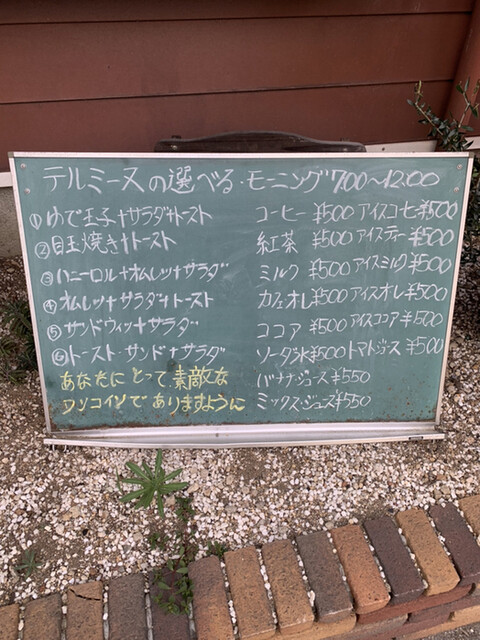 テルミーヌの選べる・モーニング7:00〜12:00
①ゆで玉子+サラダ+トースト
②目玉焼き+トースト
③ハニーロール+オムレツ+サラダ
④オムレツ+サラダ+トースト
⑤サンドウィッ+サラダ
⑥トースト・サンド+サラダ
あなたにとって素敵な
ワンコインでありますように
コーヒー ¥500 アイスコーヒ¥500
紅茶 ¥500 アイスティー ¥500
ミルク ¥500 アイスミルク ¥500
カフェオレ¥500 アイスオレ¥500
ココア ¥500 アイスココア ¥500
ソーダ水¥500 トマトジュース ¥500
バナナ・ジュース¥550
ミックス・ジュス¥550